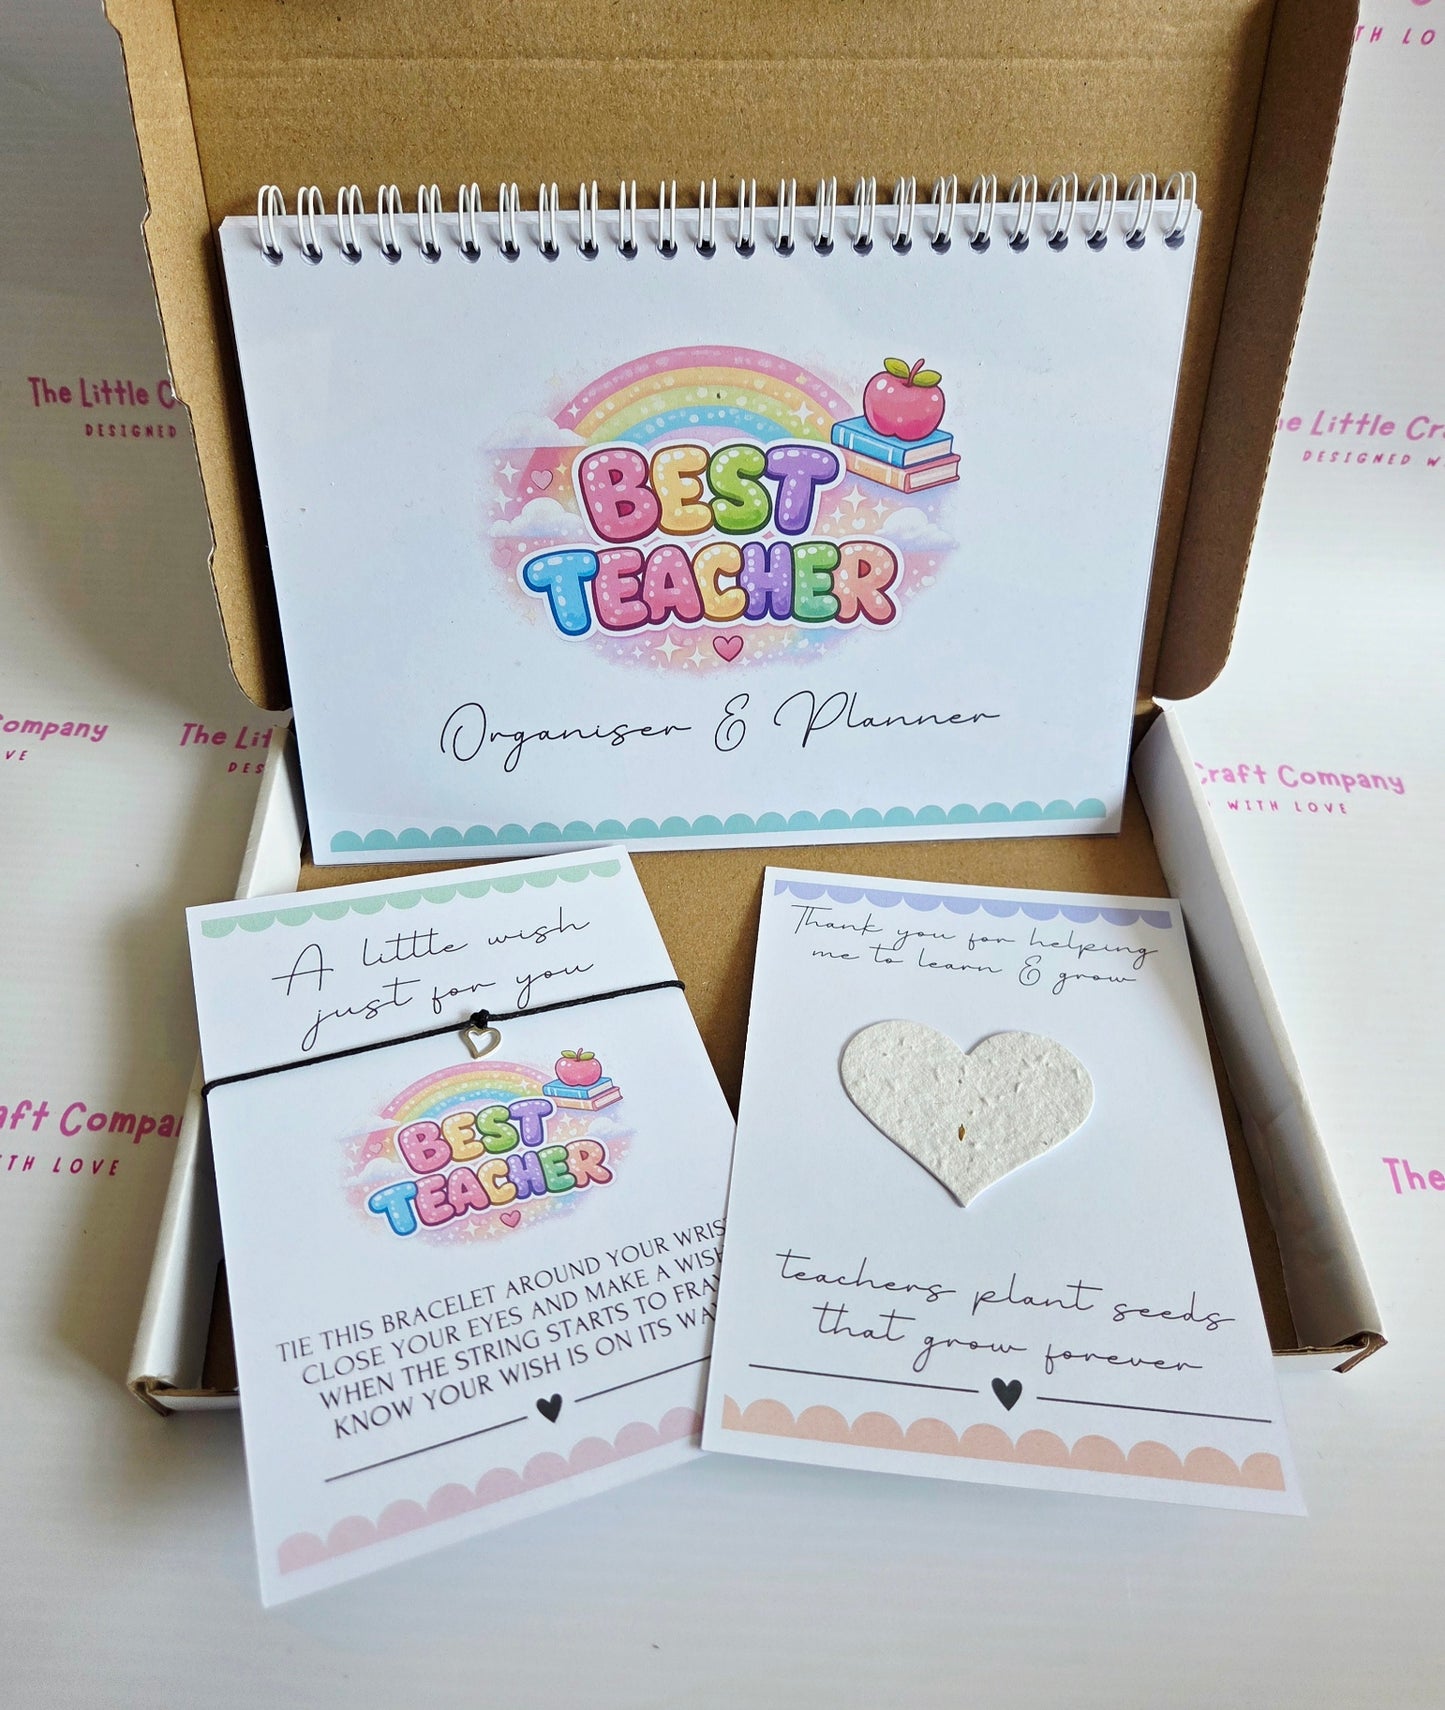 TH LO
The Little C
DESIGNED
e Little Cr
DESIGNED W
BEST
TEACHER
Organiser & Planner
ompany
VE
The Lit
DES
Craft Company
WITH LOVE
A little wish
just for you
BEST
TEACHER
TIE THIS BRACELET AROUND YOUR WRIS
CLOSE YOUR EYES AND MAKE A WISH
WHEN THE STRING STARTS TO FRAY
KNOW YOUR WISH IS ON ITS WAY
Thank you for helping
me to learn & grow
teachers plant seeds
that grow forever
aft Compa
TH LOVE
The